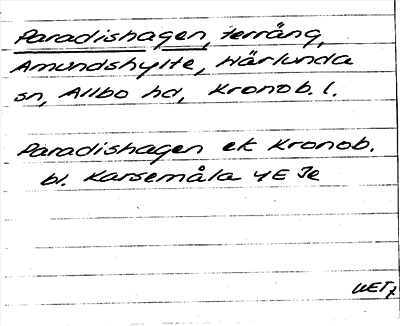 Paradishagen, terräng,
Amundshylte, Härlunda
sn, Allbo hd, Kronob. l.
Paradishagen ek Kronob.
bl. Karsemåla 4E Je